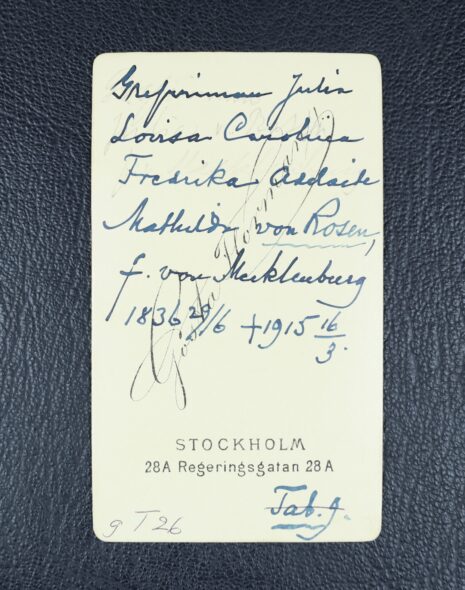 Grefvinnan Julia
Lovisa Carolina
Fredrika Adelaide
Mathilda von Rosen,
f. von Mecklenburg
1836 29/6 †1915 16/3.
Gösta Florman
STOCKHOLM
28A Regeringsgatan 28A
Tab. 9.
9 T 26